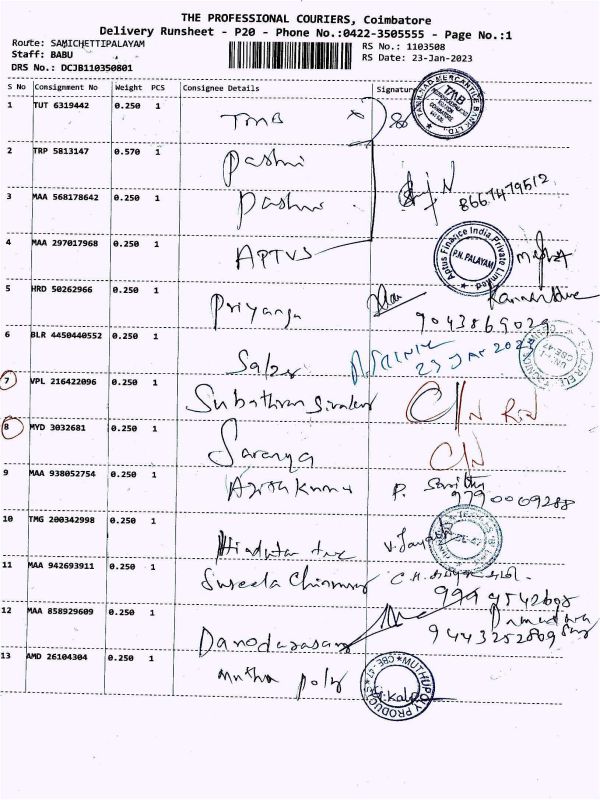 THE PROFESSIONAL COURIERS, Coimbatore
Delivery Runsheet - P20 - Phone No.:0422-3505555 - Page No.:1
Route: SAMICHETTIPALAYAM
RS No.: 1103508
Staff: BABU
RS Date: 23-Jan-2023
DRS No.: DCJB110350801
S No Consignment No Weight PCS Consignee Details Signature
1 TUT 6319442 0.250 1 TMB
TAMILNAD MERCANTILE BANK LTD. TMB
2 TRP 5813147 0.570 1 Pashni
3 MAA 568178642 0.250 1 8667479512
4 MAA 297017968 0.250 1 APTUS
Aptus Finance India Private Limited P.N. PALAYAM
5 HRD 50262966 0.250 1 Priyanga
9043869029
6 BLR 4450440552 0.250 1 Salzer
23 JAN 2023
7 VPL 216422096 0.250 1 Subathran C/N
8 MYD 3032681 0.250 1 Saranya C/N
9 MAA 938052754 0.250 1 P.
9790009288
10 TMG 200342998 0.250 1 V.
11 MAA 942693911 0.250 1 Suseela
9994542698
12 MAA 858929609 0.250 1 Damodarasamy
9443252809
13 AMD 26104304 0.250 1 Muthu poly
MUTHUPOLY PRODUCTS CBE-47